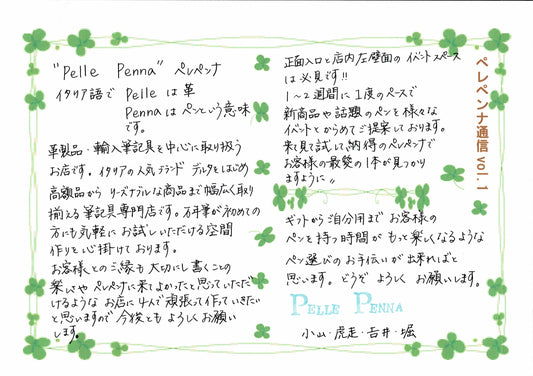 ペレペンナ通信 vol.1
"Pelle Penna" ペレペンナ
イタリア語で Pelle は革
Penna はペンという意味
です。
革製品・輸入筆記具を中心に取り扱う
お店です。イタリアの人気ブランド デルタをはじめ
高額品から リーズナブルな商品まで幅広く取り
揃える筆記具専門店です。万年筆が初めての
方にも気軽に お試しいただける空間
作りを心掛けております。
お客様とのご縁も大切にし書くことの
楽しいや ペレペンナに来てよかったと思っていただ
けるような お店に4人で頑張って作っていきたい
と思いますので 今後とも よろしくお願い
します。
正面入口と店内左壁面の イベントスペース
は必見です!!
1〜2週間に 1度のペースで
新商品や話題のペンを様々な
イベントとからめてご提案しております。
来て見て試して納得のペレペンナで
お客様の最愛の1本が見つかり
ますように〃
ギフトからご自分用まで お客様の
ペンを持つ時間が もっと楽しくなるような
ペン選びの お手伝いが出来ればと
思います。どうぞ よろしく お願いします。
PELLE PENNA
小山・虎走・吉井・堀